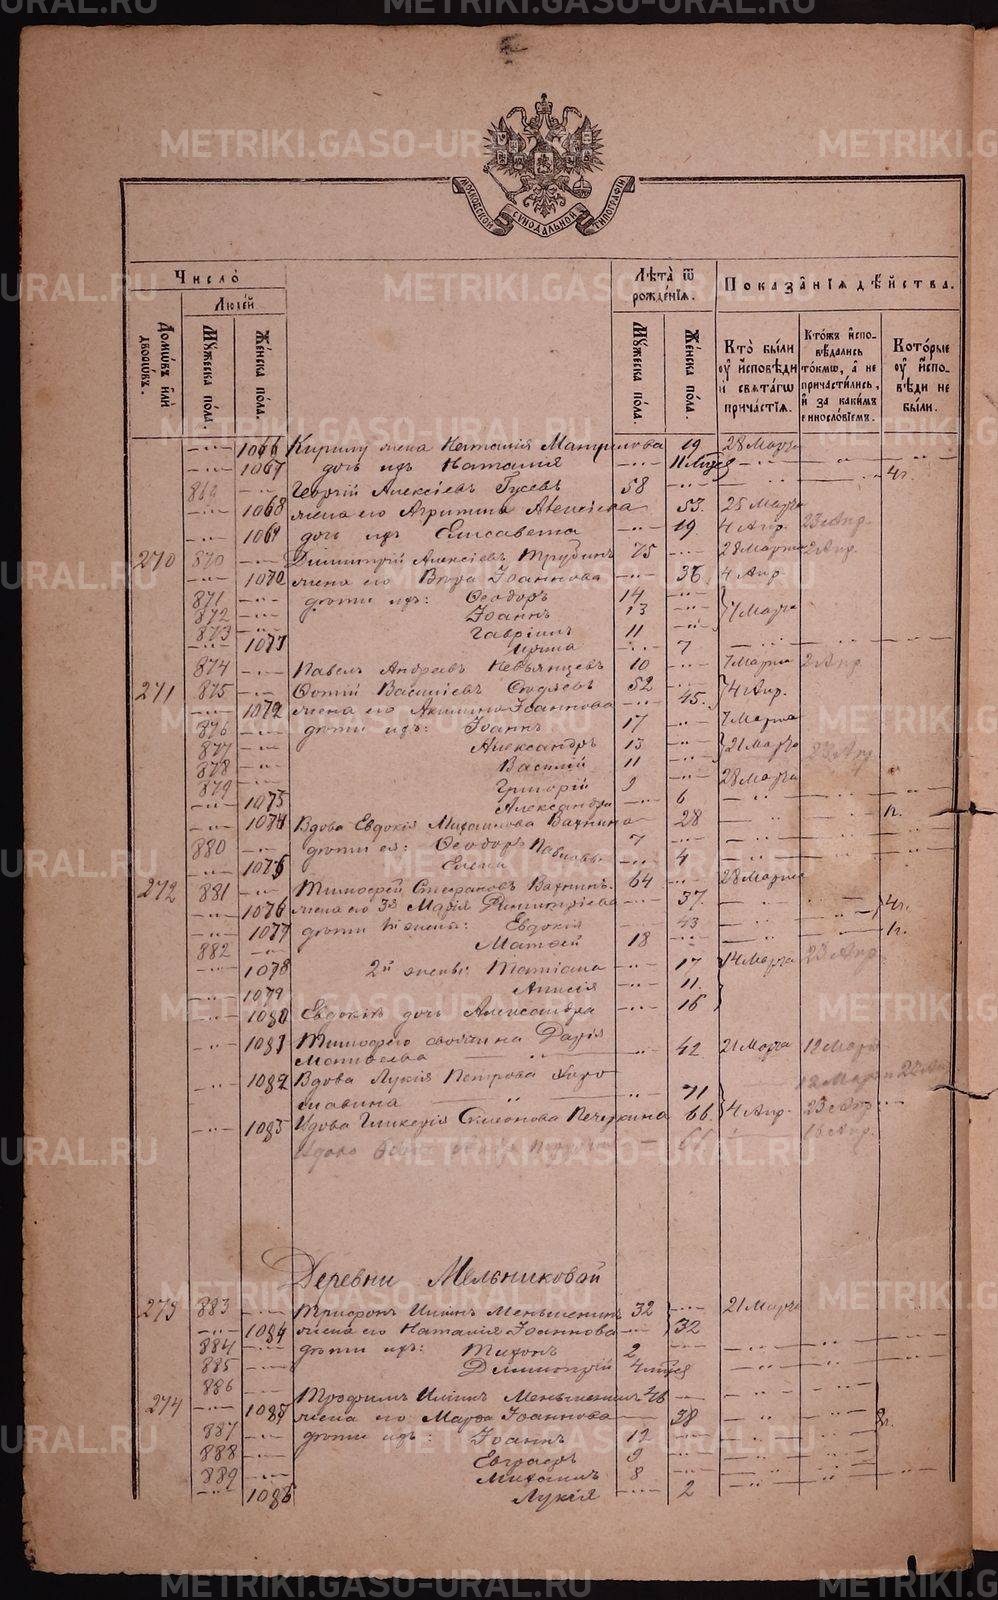 МОСКОВСКОЙ СѴНОДАЛЬНОЙ ТИПОГРАФІИ
Число
Людей
Домѡвъ или дворѡвъ.
Мꙋжеска пола.
Женска пола.
Лѣта ѿ рожденїѧ.
Мꙋжеска пола.
Женска пола.
Показанїѧ дѣйства.
Кто были оу исповѣди и свѧтагѡ причастїѧ.
Ктожъ исповѣдались токмѡ, а не причастились, и за какимъ винословїемъ.
Которые оу исповѣди не были.
1066 Кириллу жена Наталія 19 28 Марта
1067 дочь ихъ Наталія
869 Георгій Алексіевъ Гусевъ 58
1068 жена его Агрипина Алексіева 53 25 Марта
1069 дочь ихъ Елисавета 19 4 Апр. 23 Апр.
270 870 Димитрій Алексіевъ Трубинъ 75 28 Марта 2 Апр.
1070 жена его Вѣра Іоаннова 36 4 Апр.
871 дѣти ихъ: Ѳеодоръ 14
872 Іоаннъ 13 7 Марта
873 Гавріилъ 11
1071 Ирина 7
874 Павелъ Андреевъ Невьянцевъ 10 7 Марта 2 Апр.
271 875 Фотій Василіевъ 52 4 Апр.
1072 жена его Акилина Іоаннова 45
876 дѣти ихъ: Іоаннъ 17 7 Марта
877 Александръ 13 21 Марта 23 Апр
878 Василій 11
879 Григорій 9 28 Марта
1073 Александра 6
1074 Вдова Евдокія Михаилова Вахнина 28
880 дѣти ея: Ѳеодоръ Павловъ 7
1075 Елена 4
272 881 Тимоѳей Стефановъ Вахнинъ 64 28 Марта
1076 жена его 3я Марія Димитріева 37
1077 дѣти 1й жены: Евдокія 43
882 Матѳей 18
1078 2й жены: Татіана 17 14 Марта 23 Апр
1079 Анисія 11
1080 Евдокіи дочь Александра 16
1081 Тимоѳею своячина Дарія 42 21 Марта 12 Марта
Матвѣева
1082 Вдова Лукія Петрова 71
1083 Вдова Гликерія Симеонова Печеркина 66 4 Апр. 23 Апр
Вдова 16 Апр.
Деревни Мельниковой
273 883 Трифонъ Ильинъ Меньшенинъ 32 21 Марта
1084 жена его Наталія Іоаннова 32
884 дѣти ихъ: Тихонъ 2
885 Димитрій
274 886 Трофимъ Ильинъ Меньшенинъ 46
1085 жена его Марѳа Іоаннова 38
887 дѣти ихъ: Іоаннъ 12
888 Евграфъ 9
889 Михаилъ 8
1086 Лукія 2
METRIKI.GASO-URAL.RU